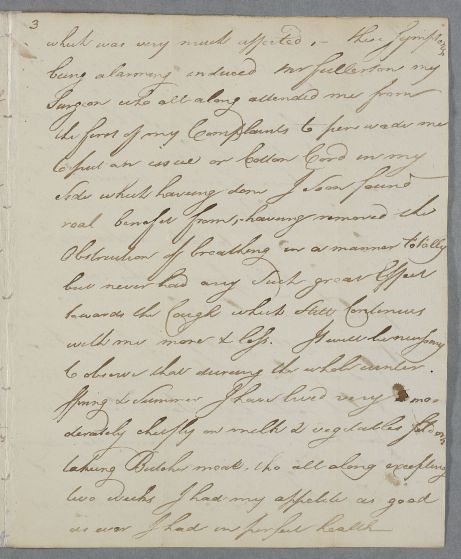 3
which was very much affected, – these Symptoms
being alarming induced Mr Fullerton my
Surgeon who all along attended me from
the first of my Complaints to perswade me
to put an issue or Cotton Cord in my
Side which having done I soon found
real benefit from, having removed the
Obstruction of breathing in a manner totally
but never had any Such great Effect
towards the Cough which Still Continues
with me more & less. It will be necessary
to observe that dureing the whole winter
Spring & Summer I have lived very mo-
derately cheifly on milk & vegetables Seldom
taking Butcher meat. tho all along excepting
two weeks I had my appetite as good
as ever I had in perfect health